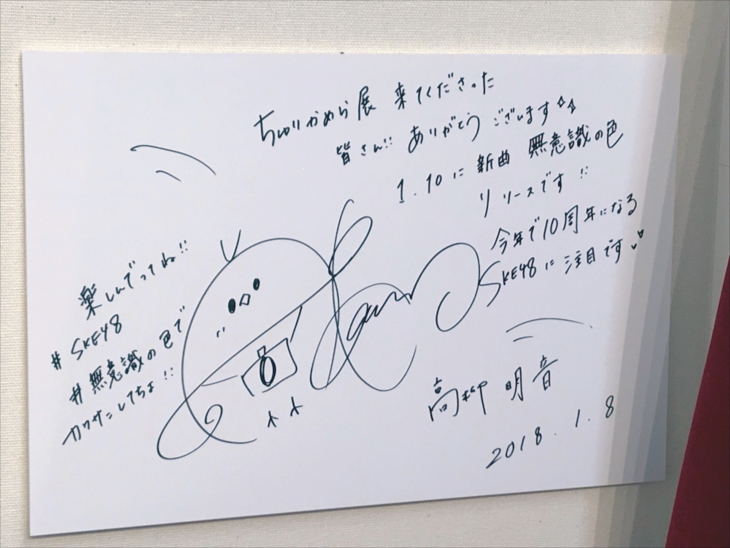 ちゅりかめら展 来てくださった
皆さん!! ありがとうございます
1.10に 新曲 無意識の色
リリースです!!
今年で10周年になる
SKE48に注目です
楽しんでってね!!
# SKE48
# 無意識の色で
カクサンしてちょ!!
高柳 明音
2018.1.8